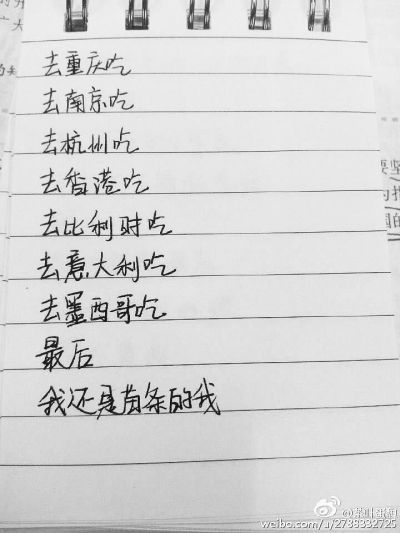 去重庆吃
去南京吃
去杭州吃
去香港吃
去比利时吃
去意大利吃
去墨西哥吃
最后
我还是苗条的我
weibo.com/u/2738332725